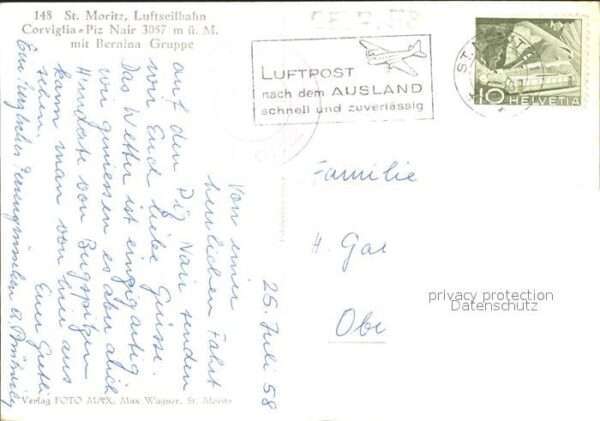 148 St. Moritz, Luftseilbahn
Corviglia-Piz Nair 3057 m ü. M.
mit Bernina Gruppe
LUFTPOST
nach dem AUSLAND
schnell und zuverlässig
ST. MORITZ
10 HELVETIA
25. Juli 58
Von einer
herrlichen Fahrt
auf den Piz Nair senden
wir Euch liebe Grüsse.
Das Wetter ist einzigartig
wir geniessen es aber auch
Hunderte von Bergspitzen
kann man von hier aus
sehen.
Eure Gretli
Familie
H. Ga
Obe
privacy protection
Datenschutz
Verlag FOTO MAX, Max Wagner, St. Moritz